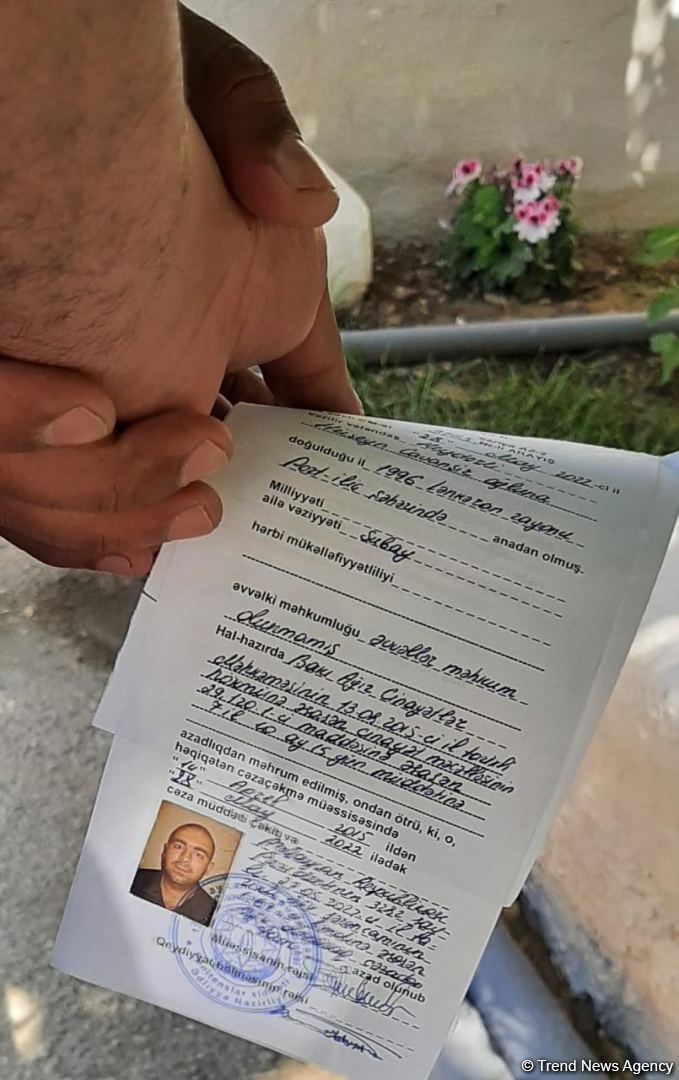 Verilir vətəndaş
28 May 2022-ci il
Hüseyn Cavanşir oğluna
doğulduğu il 1996 Lənkəran rayonu
Port-iliç şəhərində anadan olmuş.
Milliyyəti
ailə vəziyyəti Subay
hərbi mükəlləfiyyətliliyi
əvvəlki məhkumluğu əvvəllər məhkum
olunmamış
Hal-hazırda Bakı Ağır Cinayətlər
Məhkəməsinin 13.08.2015-ci il tarixli
hökmünə əsasən Cinayət Məcəlləsinin
29,120.1-ci maddəsinə əsasən
7 il 10 ay 15 gün müddətinə
azadlıqdan məhrum edilmiş, ondan ötrü, ki, o,
həqiqətən cəzaçəkmə müəssisəsində
"14" Aprel 2015 ildən
"28" May 2022 ilədək
cəza müddəti çəkib və
Azərbaycan Respublikası
Prezidentinin
əsasən
cəzadan
azad olunub
Müəssisənin rəisi
Qeydiyyat bölməsinin rəisi
Ədliyyə Nazirliyi
© Trend News Agency